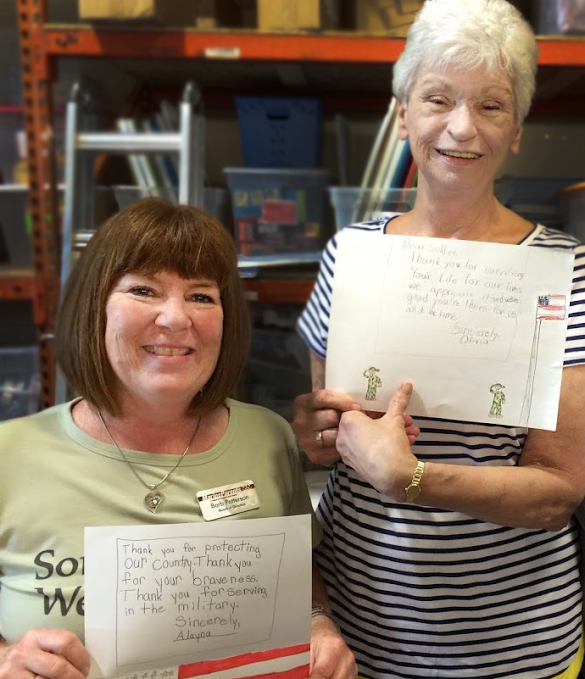 Dear
Thank you for
Your Life for our lives
we appreciate it and we're
glad you're there for us
all the time.
Sincerely,
Olivia
Barb Patterson
Sol
We
Thank you for protecting
our country. Thank you
for your braveness.
Thank you for serving
in the military.
Sincerely,
Alayna